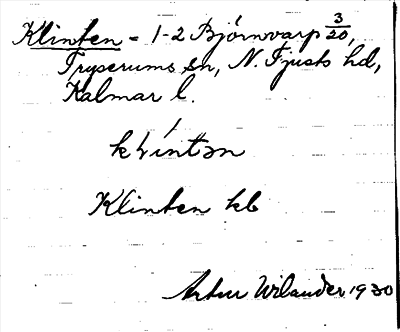 Klinten = 1-2 Björnvarp 3/20,
Tryserums sn, N. Tjusts hd,
Kalmar l.
klintən
Klinten kb
Artur Wilander 1930